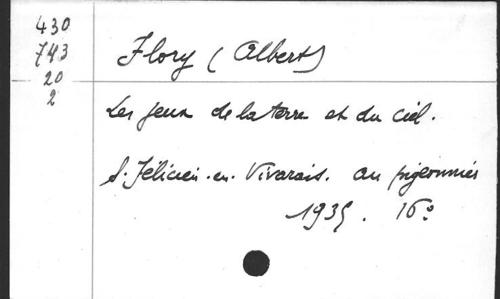 430
743
20
2
Flory (Albert)
Les jeux de la terre et du ciel.
S. Félicien-en-Vivarais. au pigeonnier
1935. 16°